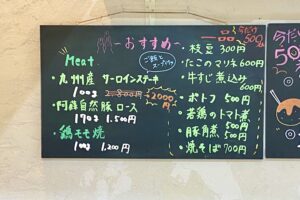 おすすめ
Meat
ご飯と
スープ付
・九州産 サーロインステーキ
100g 2,800円→2000円
・阿蘇自然豚 ロース
170g 1,500円
・鶏モモ焼
1,200円
一品
今だけ
500
・枝豆 300円
・たこのマリネ 600円
・牛すじ煮込み
600円
・ポトフ 500円
・若鶏のトマト煮
500円
・豚角煮 500円
・焼そば 700円
今だけ
50